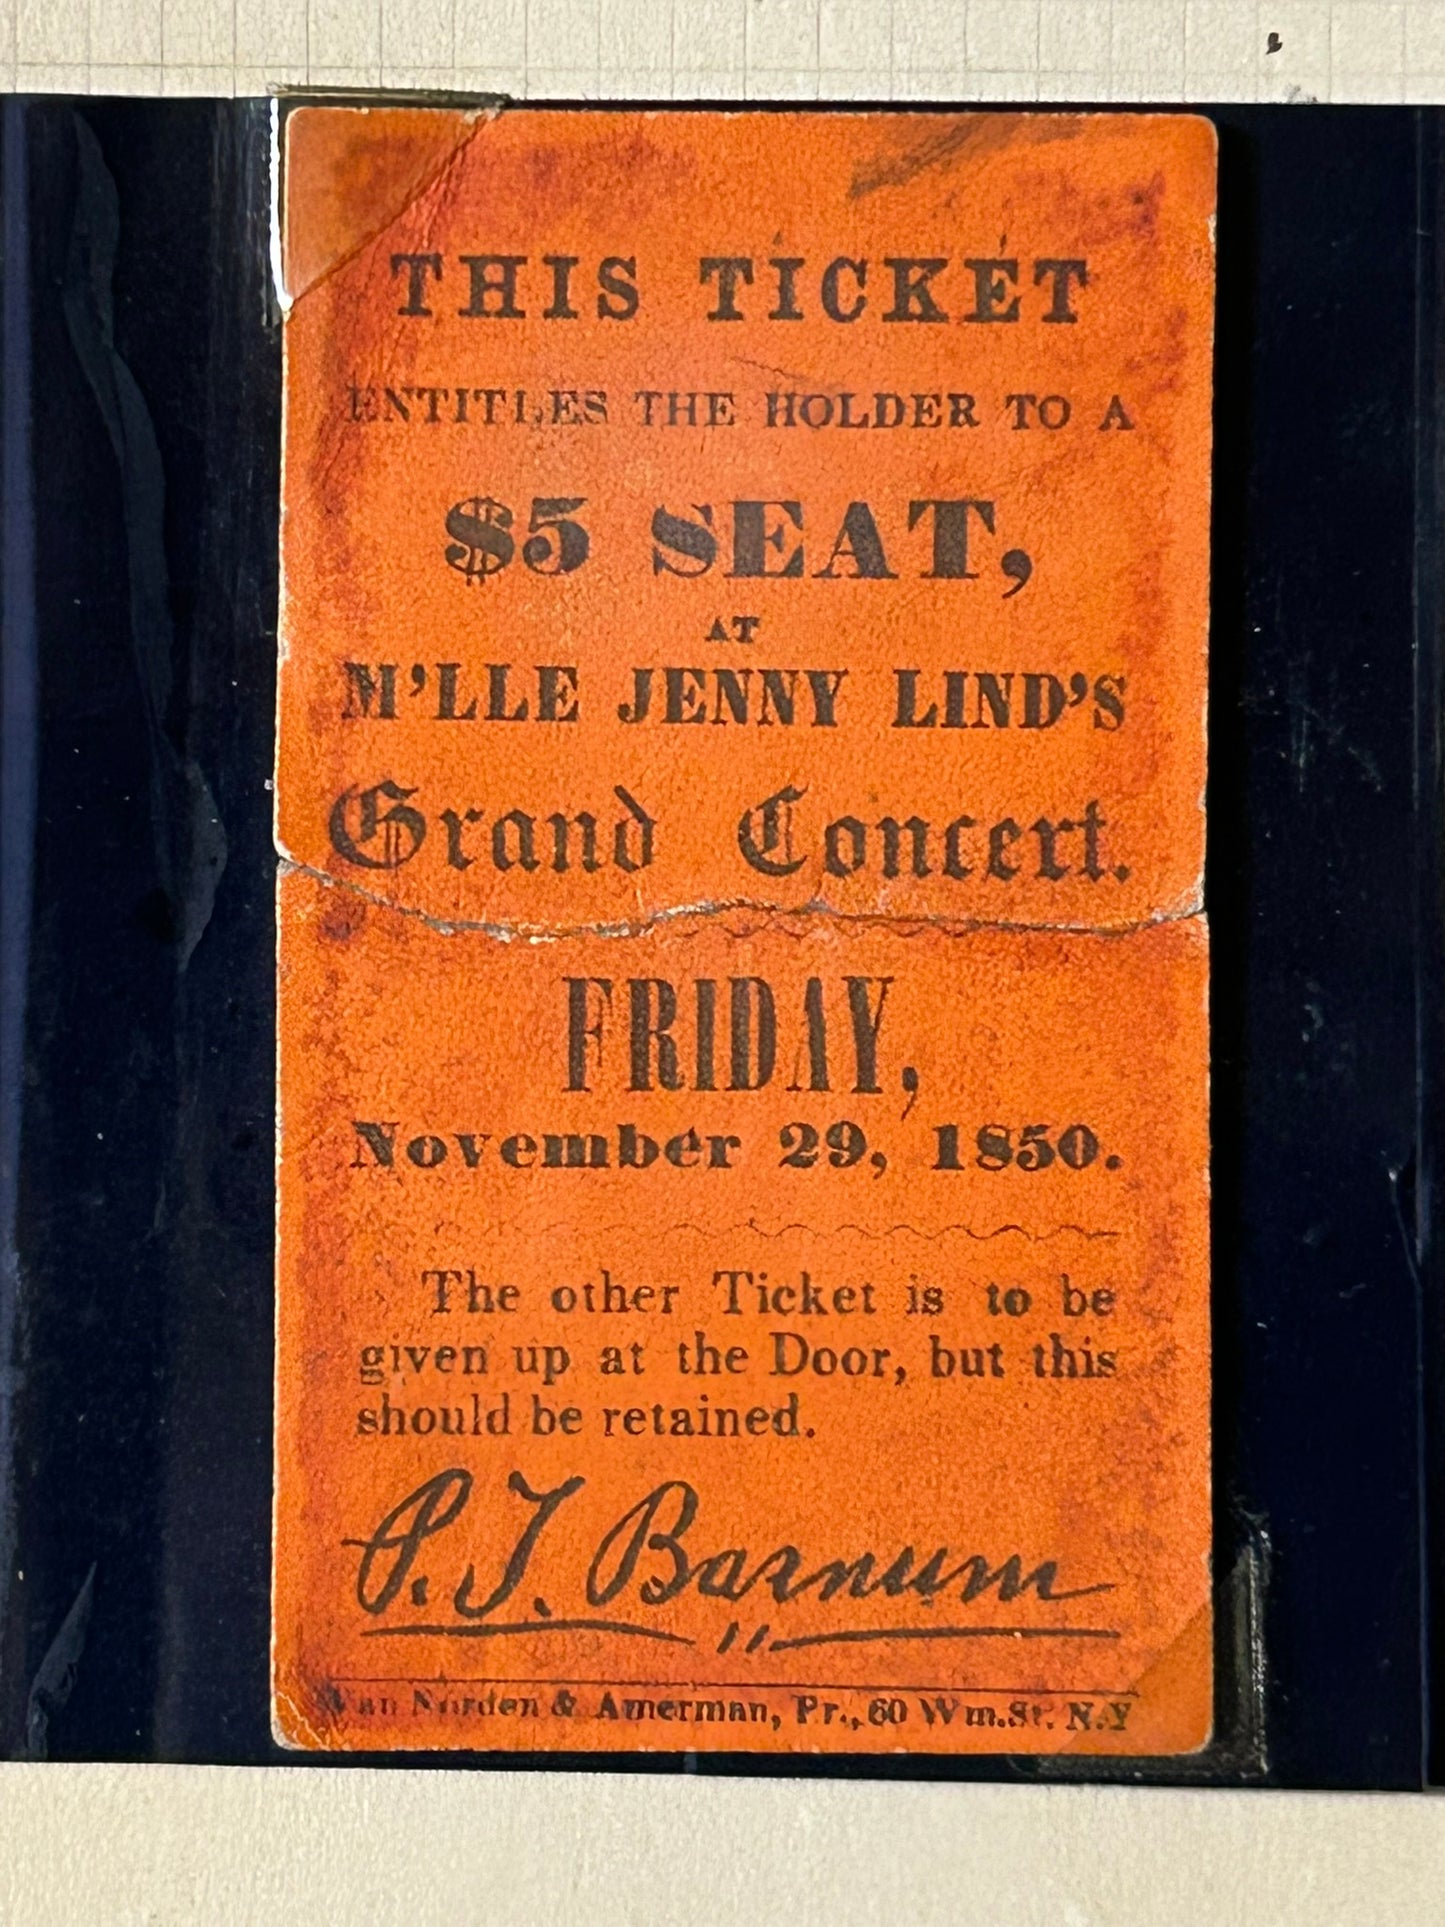 THIS TICKET
ENTITLES THE HOLDER TO A
$5 SEAT,
AT
M'LLE JENNY LIND'S
Grand Concert.
FRIDAY,
November 29, 1850.
The other Ticket is to be
given up at the Door, but this
should be retained.
P. T. Barnum
Van Norden & Amerman, Pr., 60 Wm. St. N.Y